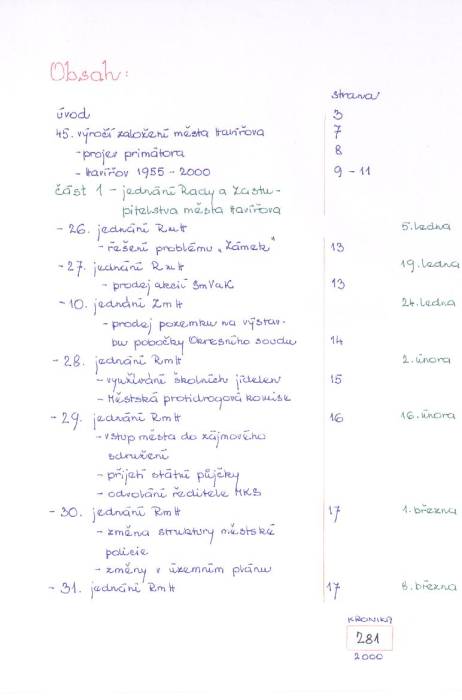 Obsah:
strana
úvod 3
45. výročí založení města Havířova 7
- projev primátora 8
- Havířov 1955 - 2000 9 - 11
část 1 - jednání Rady a Zastu-
pitelstva města Havířova
- 26. jednání RmH 5. ledna
- řešení problému „Zámek" 13
- 27. jednání RmH 19. ledna
- prodej akcií SmVaK 13
- 10. jednání ZmH 24. ledna
- prodej pozemku na výstav-
bu pobočky Okresního soudu 14
- 28. jednání RmH 2. února
- využívání školních jídelen 15
- Městská protidrogová komise
- 29. jednání RmH 16 16. února
- vstup města do zájmového
sdružení
- přijetí státní půjčky
- odvolání ředitele MKS
- 30. jednání RmH 17 1. března
- změna struktury městské
policie
- změny v územním plánu
- 31. jednání RmH 17 8. března
KRONIKA
281
2000